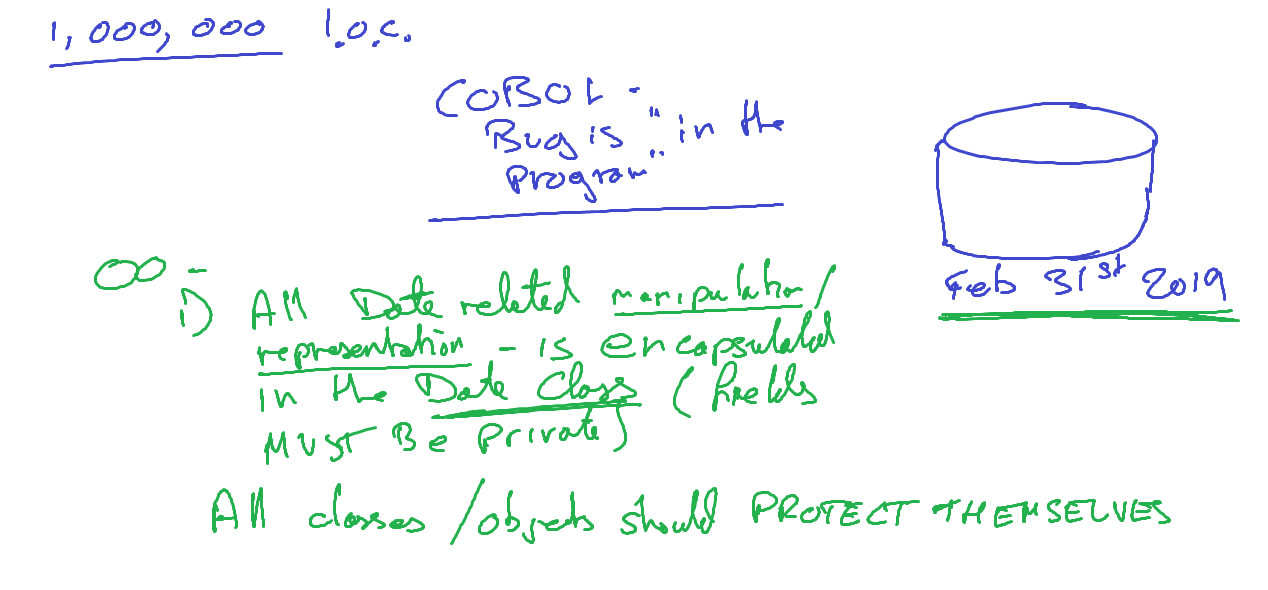 1,000,000 l.o.c.
COBOL -
Bug is "in the
Program"
Feb 31st 2019
OO -
1) All Date related manipulation/
representation - is encapsulated
in the Date Class (fields
MUST Be Private)
All classes/objects should PROTECT THEMSELVES